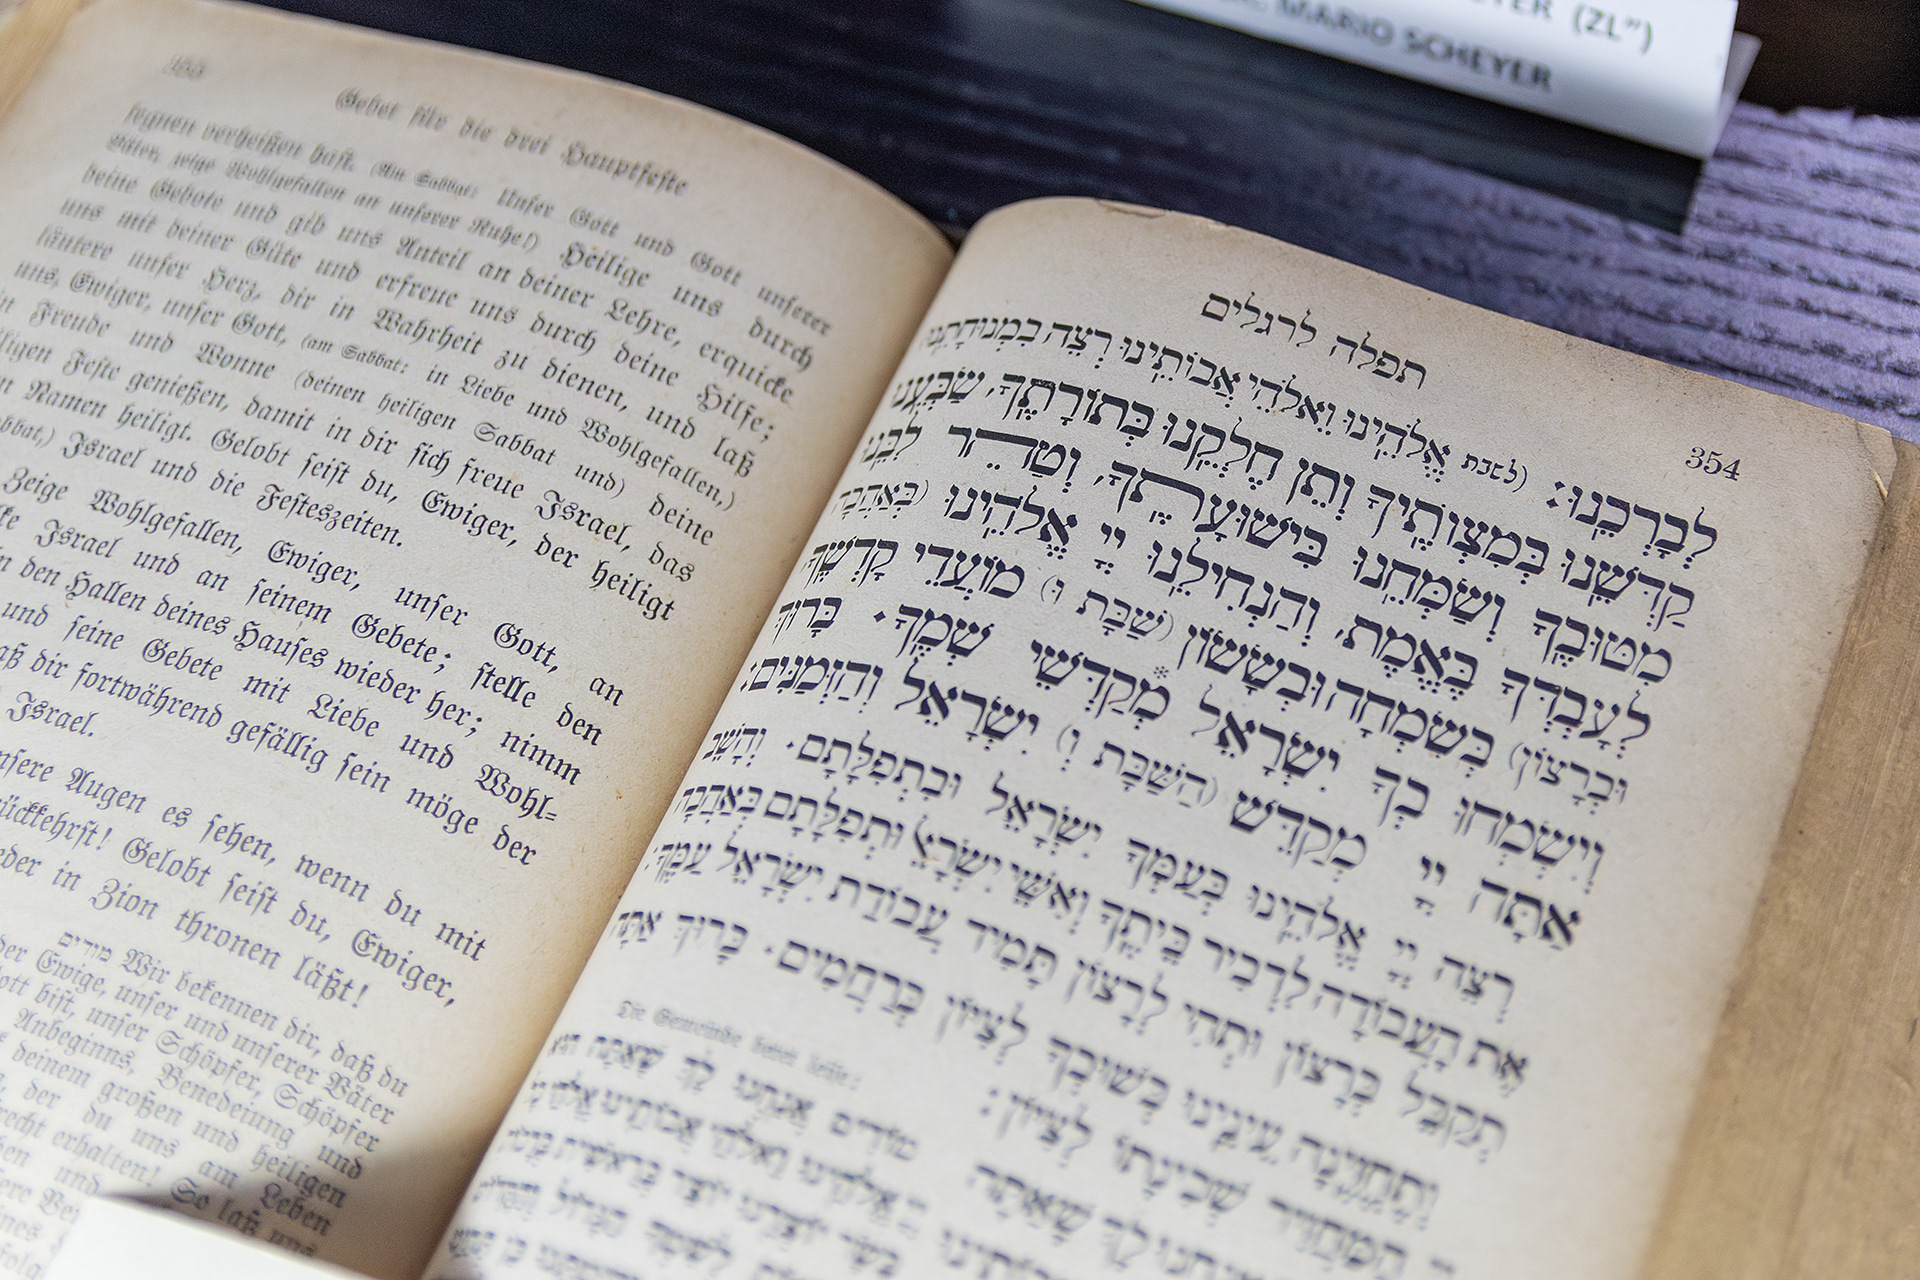 ETER (ZL")
MARIO SCHEYER
Gebet für die drei Hauptfeste
segnen verheißen hast. (Am Sabbat: Unser Gott und Gott unserer
Väter, zeige Wohlgefallen an unserer Ruhe!) Heilige uns durch
deine Gebote und gib uns Anteil an deiner Lehre, erquicke
uns mit deiner Güte und erfreue uns durch deine Hilfe;
läutere unser Herz, dir in Wahrheit zu dienen, und laß
uns, Ewiger, unser Gott, (am Sabbat: in Liebe und Wohlgefallen,)
in Freude und Wonne (deinen heiligen Sabbat und) deine
ligen Feste genießen, damit in dir sich freue Israel, das
n Namen heiligt. Gelobt seist du, Ewiger, der heiligt
abbat,) Israel und die Festeszeiten.
Zeige Wohlgefallen, Ewiger, unser Gott, an
ke Israel und an seinem Gebete; stelle den
n den Hallen deines Hauses wieder her; nimm
und seine Gebete mit Liebe und Wohl=
aß dir fortwährend gefällig sein möge der
Israel.
nsere Augen es sehen, wenn du mit
ückkehrst! Gelobt seist du, Ewiger,
eder in Zion thronen läßt!
מודים Wir bekennen dir, daß du
der Ewige, unser und unserer Väter
ott bist, unser Schöpfer, Schöpfer
Anbeginns, Benedeiung und
deinem großen und heiligen
der du uns am Leben
recht erhalten! So laß uns
354 תפלה לרגלים
לְבָרְכֵנוּ: (לשבת אֱלֹהֵינוּ וֵאלֹהֵי אֲבוֹתֵינוּ רְצֵה בִמְנוּחָתֵנוּ)
קַדְּשֵׁנוּ בְּמִצְוֹתֶיךָ וְתֵן חֶלְקֵנוּ בְּתוֹרָתֶךָ, שַׂבְּעֵנוּ
מִטּוּבֶךָ וְשַׂמְּחֵנוּ בִּישׁוּעָתֶךָ, וְטַהֵר לִבֵּנוּ
לְעָבְדְּךָ בֶּאֱמֶת, וְהַנְחִילֵנוּ יְיָ אֱלֹהֵינוּ (בְּאַהֲבָה
וּבְרָצוֹן) בְּשִׂמְחָה וּבְשָׂשׂוֹן (שַׁבָּת וּ) מוֹעֲדֵי קָדְשֶׁךָ
וְיִשְׂמְחוּ בְךָ יִשְׂרָאֵל מְקַדְּשֵׁי שְׁמֶךָ. בָּרוּךְ
אַתָּה יְיָ מְקַדֵּשׁ (הַשַּׁבָּת וְ) יִשְׂרָאֵל וְהַזְּמַנִּים:
רְצֵה יְיָ אֱלֹהֵינוּ בְּעַמְּךָ יִשְׂרָאֵל וּבִתְפִלָּתָם. וְהָשֵׁב
אֶת הָעֲבוֹדָה לִדְבִיר בֵּיתֶךָ וְאִשֵּׁי יִשְׂרָאֵל וּתְפִלָּתָם בְּאַהֲבָה
תְקַבֵּל בְּרָצוֹן וּתְהִי לְרָצוֹן תָּמִיד עֲבוֹדַת יִשְׂרָאֵל עַמֶּךָ:
וְתֶחֱזֶינָה עֵינֵינוּ בְּשׁוּבְךָ לְצִיּוֹן בְּרַחֲמִים. בָּרוּךְ אַתָּה
יְיָ הַמַּחֲזִיר שְׁכִינָתוֹ לְצִיּוֹן:
Die Gemeinde betet leise:
מוֹדִים אֲנַחְנוּ לָךְ שָׁאַתָּה הוּא
יְיָ אֱלֹהֵינוּ וֵאלֹהֵי אֲבוֹתֵינוּ
אֲנַחְנוּ לָךְ שָׁאַתָּה